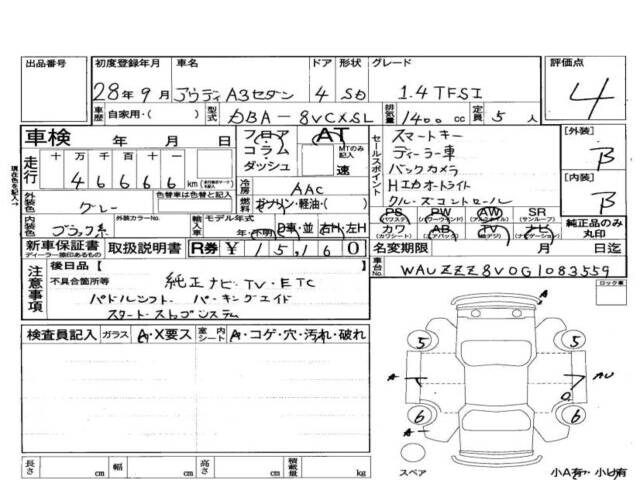 出品番号 初度登録年月 車名 ドア 形状 グレード 評価点
28年9月 アウディA3セダン 4 SD 1.4TFSI 4
車歴 自家用・( ) 型式 DBA-8VCXSL 排気量 1400 cc 定員 5 人
車検 年 月 日 フロア コラム ダッシュ AT MTのみ記入 速
現在色を記入→
走行 十 万 千 百 十 一
46666 km
冷房 AAC
外装色 色替車は色替と記入
グレー
ガソリン・軽油・( )
内装色 ブラック系 外装カラーNo. 輸入車 モデル年式 年・不明 D車・並 右H・左H
セールスポイント
スマートキー
ディーラー車
バックカメラ
Hエカオートライト
クルーズコントロール
[外装] B
[内装] B
PS (パワステ) PW (パワーウインド) AW (アルミホイル) SR (サンルーフ)
カワ (カワシート) AB (エアバック) TV ナビ (ナビゲーション)
純正品のみ丸印
新車保証書 ディーラー捺印あるもの 取扱説明書 R券 ¥ 15,160 名変期限 月 日迄
車台No. WAUZZZ8V0G1083559
ロック車
注意事項 後日品[ ]
不具合箇所等 純正ナビ・TV・ETC
パドルシフト パーキングエイド
スタートストップシステム
検査員記入 ガラス A・X要ス 室内シート A・コゲ・穴・汚れ・破れ
A
5 5
A AU
6 6
A
スペア 小A有 小U有
長さ cm 幅 cm 高さ cm 積載量 kg